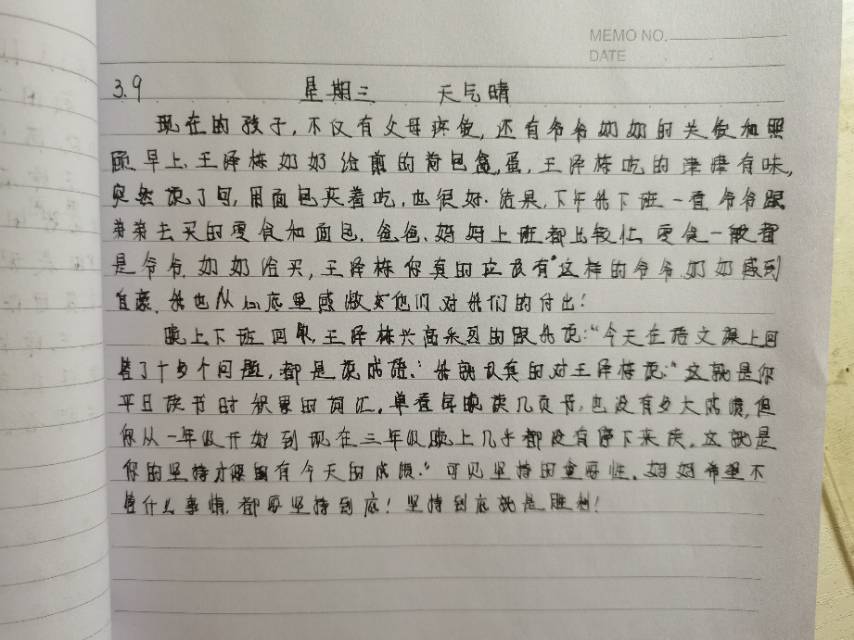 MEMO NO.
DATE
3.9 星期三 天气晴
现在的孩子,不仅有父母疼爱,还有爷爷奶奶的关爱和照
顾早上、王泽栋奶奶给煎的荷包蛋,王泽栋吃的津津有味,
突然说了句,用面包夹着吃,也很好.结果,下午我下班一看爷爷跟
去买的零食和面包.爸爸、妈妈上班都比较忙零食一般都
是爷爷.奶奶给买,王泽栋你真的应该有这样的爷爷.奶奶感到
自豪.我也从心底里感激他们对我们的付出!
晚上下班回来,王泽栋兴高采烈的跟我说:“今天在语文课上回
答了十多个问题,都是说成语.”我就认真的对王泽栋说:“这就是你
平日读书时积累的词汇.单看每晚读几页书,也没有多大成绩,但
你从一年级开始到现在三年级晚上几乎都没有停下来读.这就是
你的坚持才有今天的成绩.”可见坚持的重要性.妈妈希望不
管什么事情,都要坚持到底!坚持到底就是胜利!